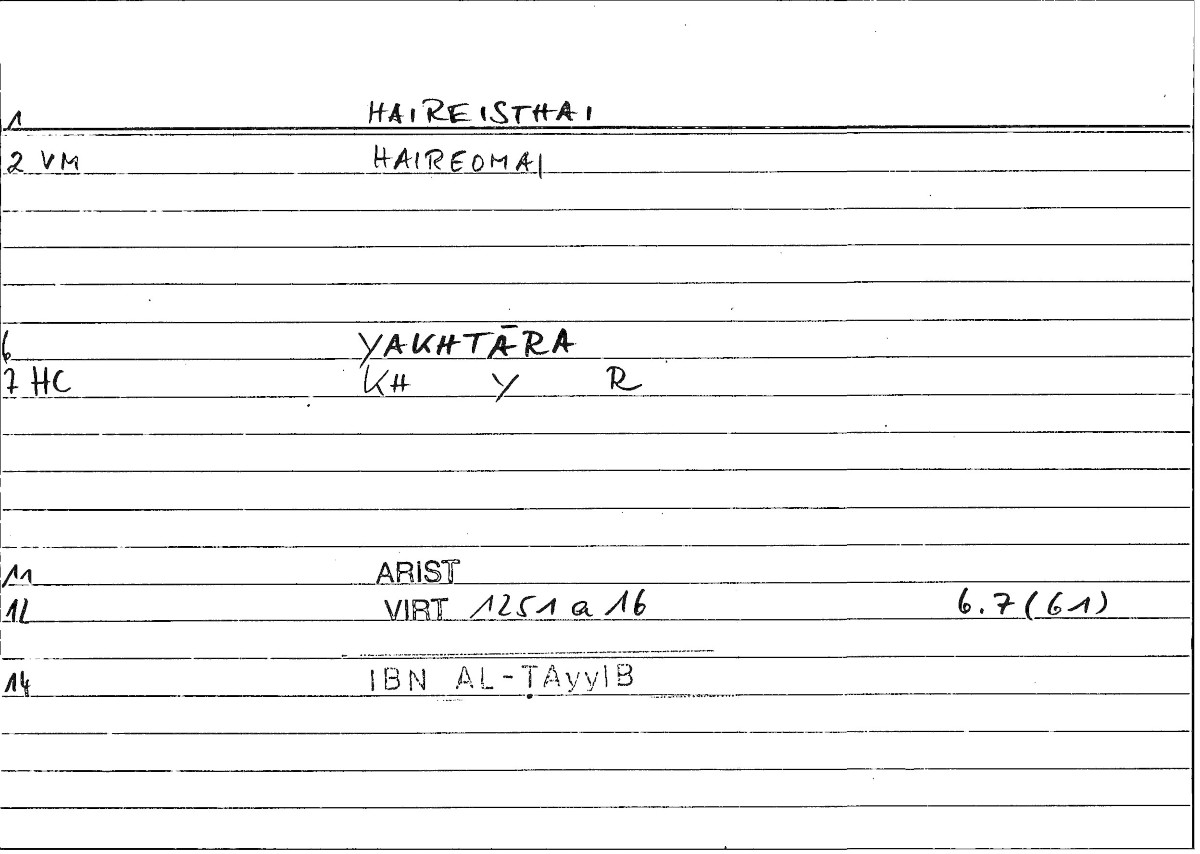 1 HAIREISTHAI
2 VM HAIREOMAI
6 YAKHTĀRA
7 HC KH Y R
11 ARIST
12 VIRT 1251 a 16 6.7(61)
14 IBN AL-ṬAyyIB